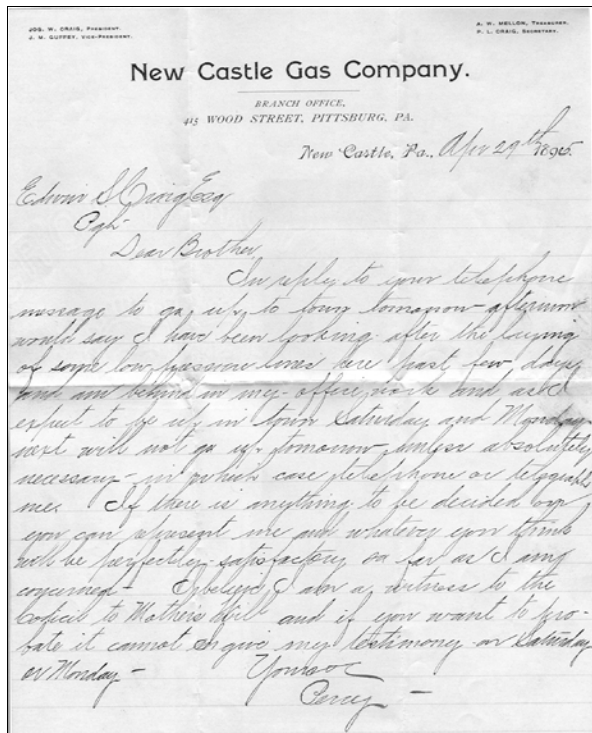 JOS. W. CRAIG, PRESIDENT.
J. M. GUFFEY, VICE-PRESIDENT.
A. W. MELLON, TREASURER.
P. L. CRAIG, SECRETARY.
New Castle Gas Company.
BRANCH OFFICE,
415 WOOD STREET, PITTSBURG, PA.
New Castle, Pa., Apr 29th 1895.
Edwin S Craig Esq
Pgh
Dear Brother
In reply to your telephone
message to go up to town tomorrow afternoon
would say I have been looking after the laying
of some low pressure lines here past few days
and am behind in my office work and as I
expect to be up in town Saturday and Monday
next will not go up tomorrow unless absolutely
necessary - in which case telephone or telegraph
me. If there is anything to be decided on
you can represent me and whatever you think
will be perfectly satisfactory so far as I am
concerned - I believe I am a witness to the
Codicil to Mother's Will and if you want to pro-
bate it cannot I give my testimony on Saturday
or Monday -
Yours
Percy -